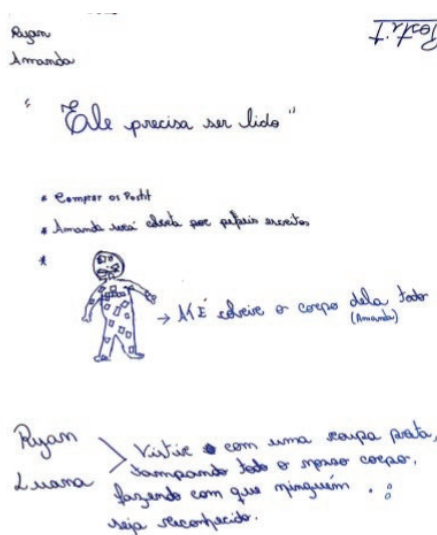 Ryan
Postit
Amanda
"Ele precisa ser lido"
* Comprar os Postit
* Amanda será coberta por papeis escritos
*
→ ATÉ cobrir o corpo dela todo
(Amanda)
Ryan
Luana
Vistir com uma roupa preta,
tampando todo o nosso corpo,
fazendo com que ninguém
seja reconhecido.